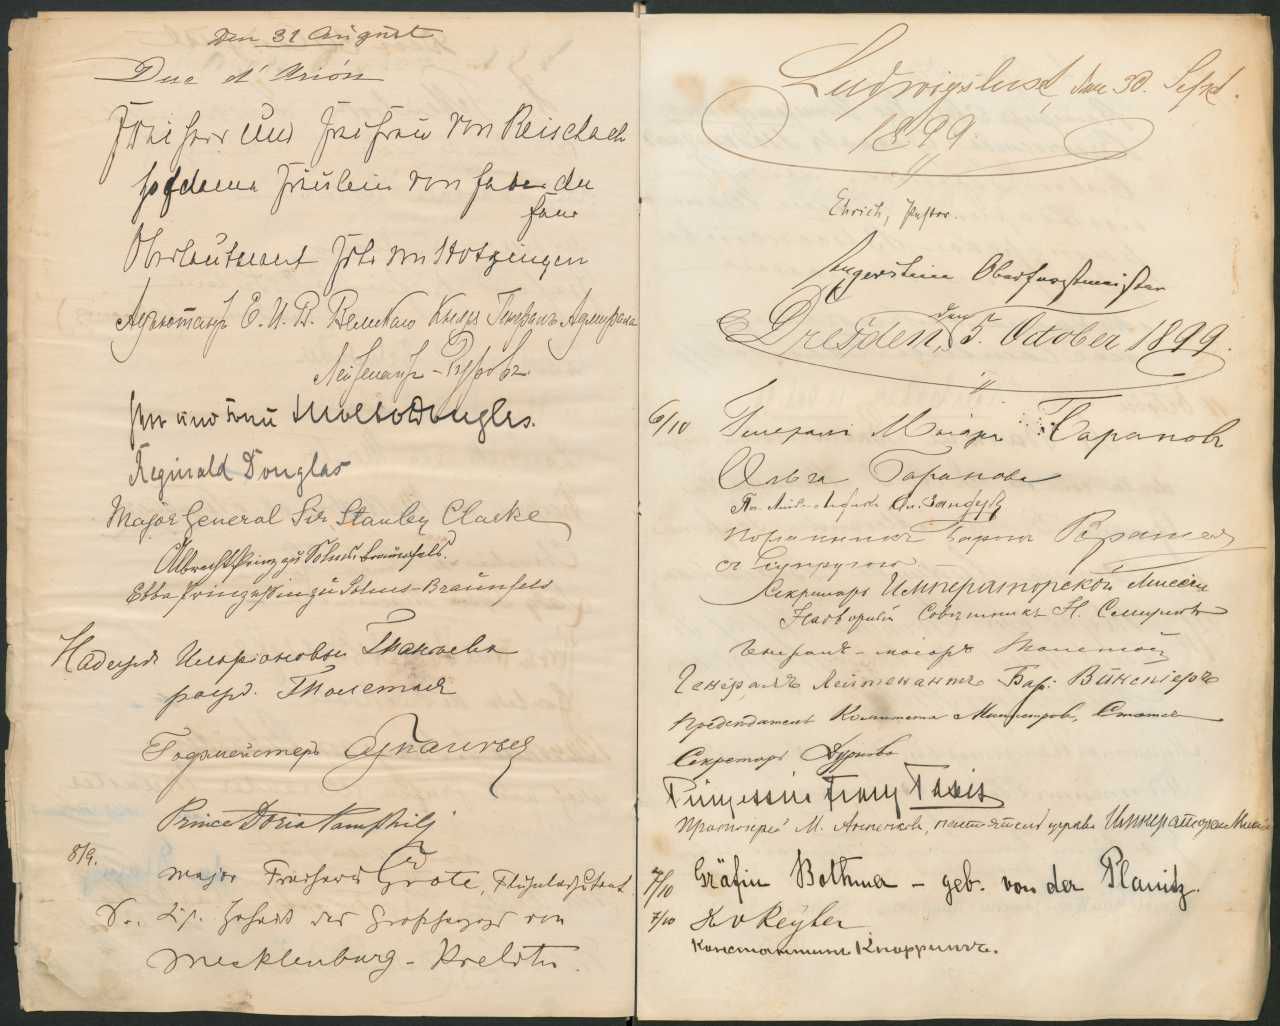 Den 31 August
Duc d'Arión
Freiherr und Freifrau von Reischach
Hofdame Fräulein von Faber du
Faur
Oberleutnant Frhr von Stotzingen
Адъютантъ Е. И. В. Великаго Князя Генералъ Адмирала
Лейтенантъ
Herr und Frau Douglas.
Reginald Douglas
Major General Sir Stanley Clarke
Albrecht Prinz zu Solms Braunfels.
Ebba Prinzessin zu Solms-Braunfels
Надежда Иларіоновна
рожд. Толстая
Гофмейстеръ
Prince Doria Pamphilj
8/9.
Major Freiherr Grote, Flügeladjutant
Sr. Kgl. Hoheit des Großherzogs von
Mecklenburg-Strelitz.
Ludwigslust, den 30. Sept.
1899
Ehrich, Pastor.
Oberforstmeister
Dresden, den 5. October 1899.
6/10 Генералъ Маіоръ Барановъ
Ольга Баранова
Поручикъ Баронъ
съ супругою
Секретарь Императорской Миссіи
Надворный Совѣтникъ Н. Смирновъ
Генералъ-маіоръ Толстой
Генералъ Лейтенантъ Бар:
Предсѣдатель Комитета Министровъ, Статсъ
Секретарь Дурново
Prinzessin Franz Taxis
Протоіерей М. настоятель церкви Императ. Миссіи
7/10 Gräfin Bothmer – geb. von der Planitz.
7/10
Константинъ